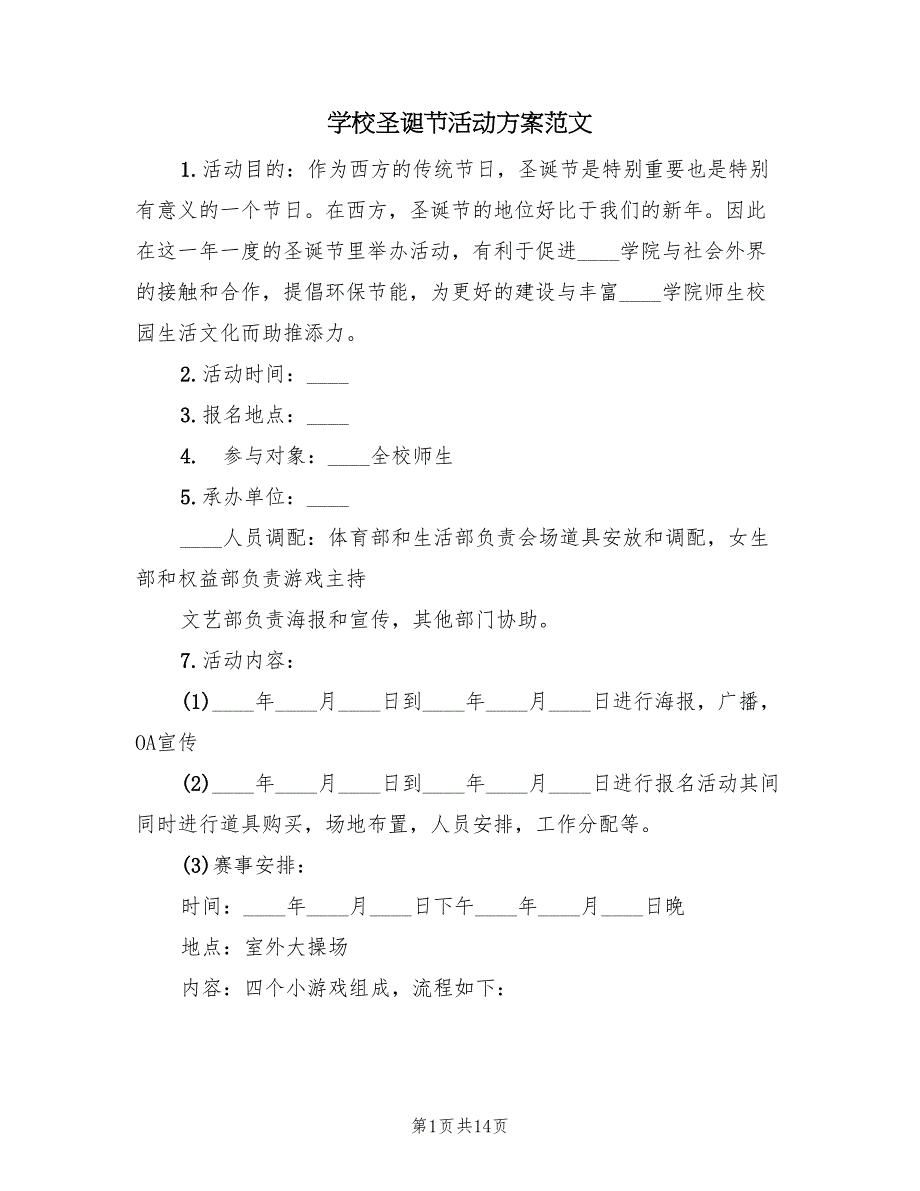 学校圣诞节活动方案范文
1.活动目的：作为西方的传统节日，圣诞节是特别重要也是特别
有意义的一个节日。在西方，圣诞节的地位好比于我们的新年。因此
在这一年一度的圣诞节里举办活动，有利于促进____学院与社会外界
的接触和合作，提倡环保节能，为更好的建设与丰富____学院师生校
园生活文化而助推添力。
2.活动时间：____
3.报名地点：____
4.　参与对象：____全校师生
5.承办单位：____
____人员调配：体育部和生活部负责会场道具安放和调配，女生
部和权益部负责游戏主持
文艺部负责海报和宣传，其他部门协助。
7.活动内容：
(1)____年____月____日到____年____月____日进行海报，广播，
OA宣传
(2)____年____月____日到____年____月____日进行报名活动其间
同时进行道具购买，场地布置，人员安排，工作分配等。
(3)赛事安排：
时间：____年____月____日下午____年____月____日晚
地点：室外大操场
内容：四个小游戏组成，流程如下：
第1页共14页